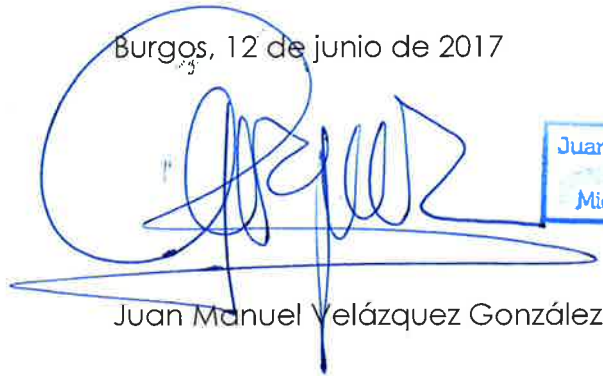 Burgos, 12 de junio de 2017
Juan
Juan Manuel Velázquez González